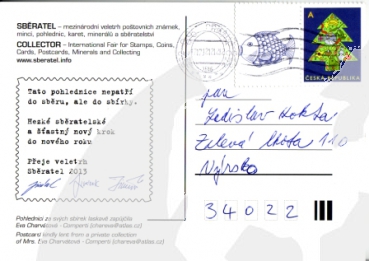 SBĚRATEL – mezinárodní veletrh poštovních známek,
mincí, pohlednic, karet, minerálů a sběratelství
COLLECTOR – International Fair for Stamps, Coins,
Cards, Postcards, Minerals and Collecting
www.sberatel.info
A
ČESKÁ REPUBLIKA
Tato pohlednice nepatří
do sběru, ale do sbírky.
Hezké sběratelské
a šťastný nový krok
do nového roku
Přeje veletrh
Sběratel 2013
pan
Ladislav
Zelená Lhota 110
Nýrsko
34022
Pohlednici ze svých sbírek laskavě zapůjčila
Eva Charvátová - Cemperei (chareva@atlas.cz)
Postcard kindly lent from a private collection
of Mrs. Eva Charvátová - Cemperei (chareva@atlas.cz)